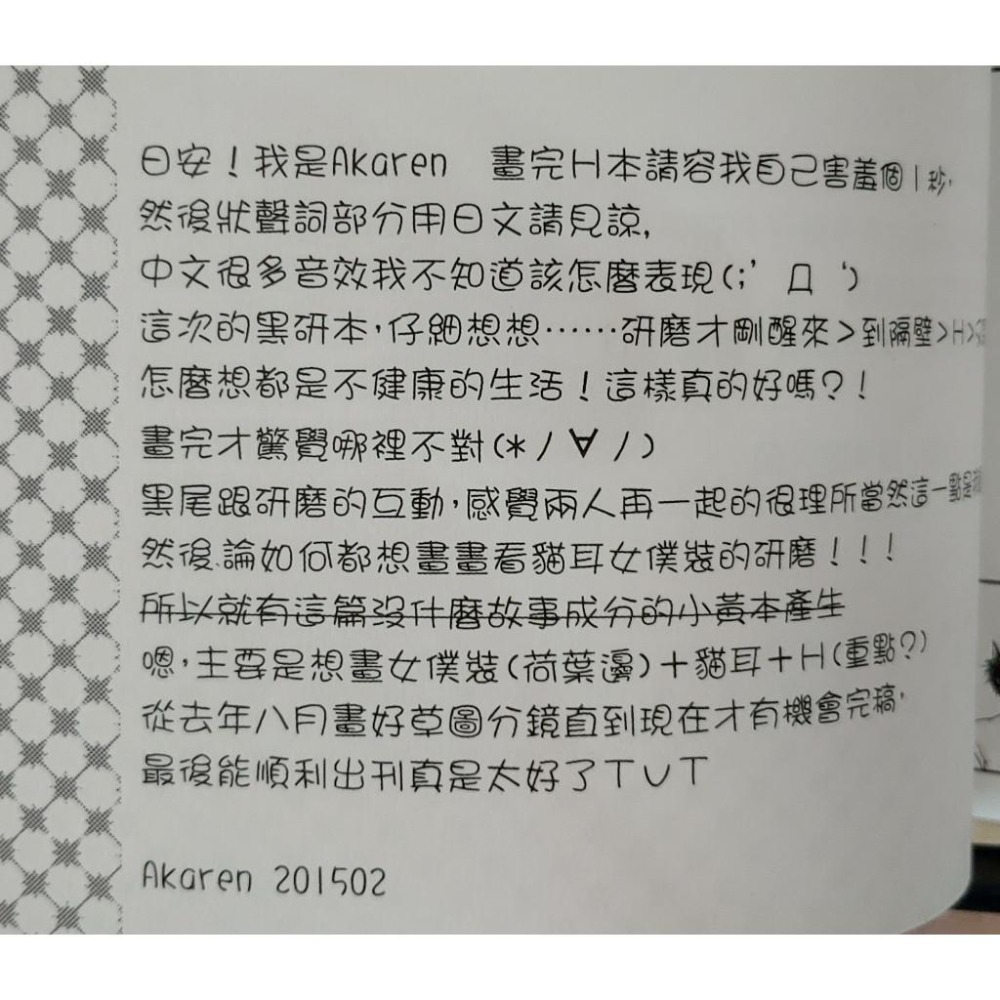 日安！我是Akaren　畫完H本請容我自己害羞個1秒，
然後狀聲詞部分用日文請見諒，
中文很多音效我不知道該怎麼表現(;´Д｀)
這次的黑研本，仔細想想……研磨才剛醒來>到隔壁>H>
怎麼想都是不健康的生活！這樣真的好嗎？！
畫完才驚覺哪裡不對(*ﾉ∀ﾉ)
黑尾跟研磨的互動，感覺兩人再一起的很理所當然這一點
然後.論如何都想畫畫看貓耳女僕裝的研磨！！！
所以就有這篇沒什麼故事成分的小黃本產生
嗯，主要是想畫女僕裝(荷葉邊)+貓耳+H(重點？)
從去年八月畫好草圖分鏡直到現在才有機會完稿，
最後能順利出刊真是太好了TUT
Akaren 201502